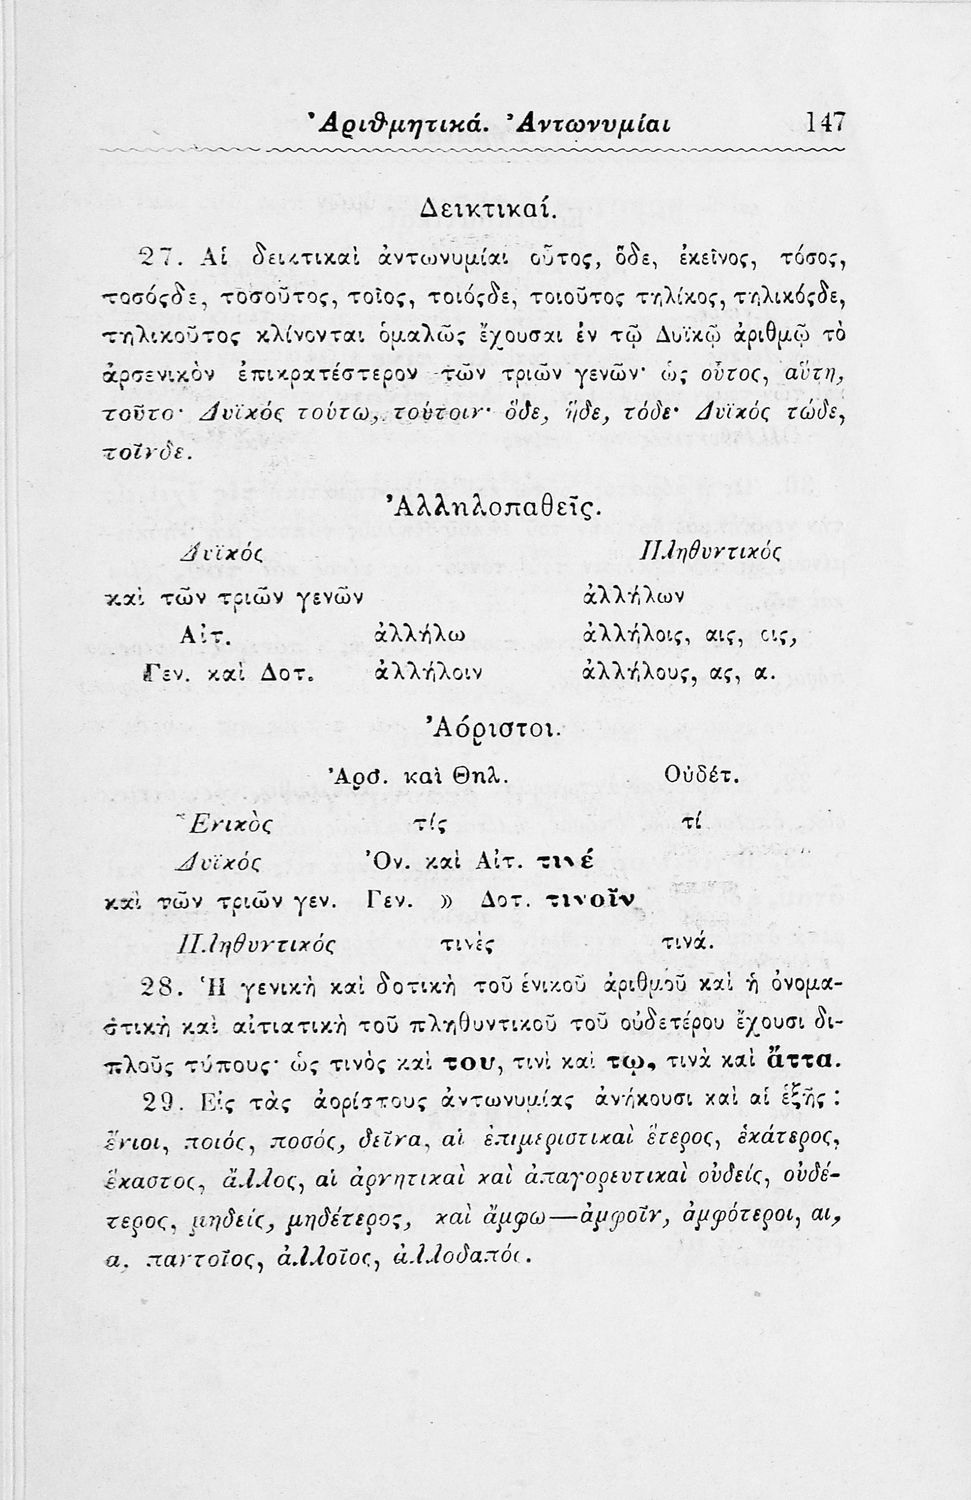 Ἀριθμητικά. Ἀντωνυμίαι 147
Δεικτικαί.
27. Αἱ δεικτικαὶ ἀντωνυμίαι οὗτος, ὅδε, ἐκεῖνος, τόσος,
τοσόςδε, τοσοῦτος, τοῖος, τοιόςδε, τοιοῦτος τηλίκος, τηλικόςδε,
τηλικοῦτος κλίνονται ὁμαλῶς ἔχουσαι ἐν τῷ Δυϊκῷ ἀριθμῷ τὸ
ἀρσενικὸν ἐπικρατέστερον τῶν τριῶν γενῶν· ὡς οὗτος, αὕτη,
τοῦτο· Δυϊκός τούτω, τούτοιν· ὅδε, ἥδε, τόδε· Δυϊκός τώδε,
τοῖνδε.
Ἀλληλοπαθεῖς.
Δυϊκός Πληθυντικός
καὶ τῶν τριῶν γενῶν ἀλλήλων
Αἰτ. ἀλλήλω ἀλλήλοις, αις, οις,
Γεν. καὶ Δοτ. ἀλλήλοιν ἀλλήλους, ας, α.
Ἀόριστοι.
Ἀρσ. καὶ Θηλ. Οὐδέτ.
Ἑνικὸς τίς τί
Δυϊκός Ὀν. καὶ Αἰτ. τινέ
καὶ τῶν τριῶν γεν. Γεν. » Δοτ. τινοῖν
Πληθυντικός τινὲς τινά.
28. Ἡ γενικὴ καὶ δοτικὴ τοῦ ἑνικοῦ ἀριθμοῦ καὶ ἡ ὀνομα-
στικὴ καὶ αἰτιατικὴ τοῦ πληθυντικοῦ τοῦ οὐδετέρου ἔχουσι δι-
πλοῦς τύπους· ὡς τινὸς καὶ του, τινὶ καὶ τῳ, τινὰ καὶ ἄττα.
29. Εἰς τὰς ἀορίστους ἀντωνυμίας ἀνήκουσι καὶ αἱ ἑξῆς:
ἔνιοι, ποιός, ποσός, δεῖνα, αἱ ἐπιμεριστικαὶ ἕτερος, ἑκάτερος,
ἕκαστος, ἄλλος, αἱ ἀρνητικαὶ καὶ ἀπαγορευτικαὶ οὐδείς, οὐδέ-
τερος, μηδείς, μηδέτερος, καὶ ἄμφω—ἀμφοῖν, ἀμφότεροι, αι,
α. παντοῖος, ἀλλοῖος, ἀλλοδαπός.